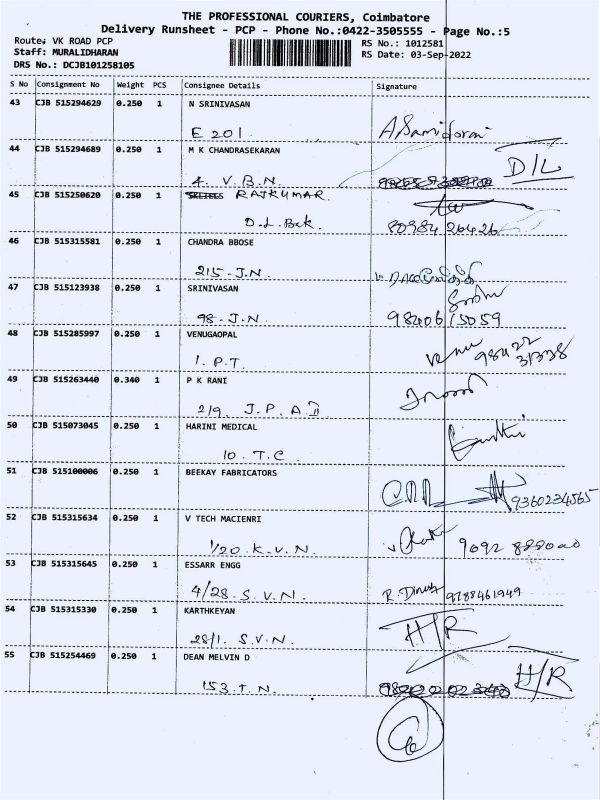 THE PROFESSIONAL COURIERS, Coimbatore
Delivery Runsheet - PCP - Phone No.:0422-3505555 - Page No.:5
Route: VK ROAD PCP
RS No.: 1012581
Staff: MURALIDHARAN
RS Date: 03-Sep-2022
DRS No.: DCJB101258105
S No Consignment No Weight PCS Consignee Details Signature
43 CJB 515294629 0.250 1 N SRINIVASAN
E 201.
44 CJB 515294689 0.250 1 M K CHANDRASEKARAN
D/L
4. V.B.N.
45 CJB 515250620 0.250 1 RAJKUMAR
D.L. Bak. 80984 26426
46 CJB 515315581 0.250 1 CHANDRA BBOSE
215-J.N.
47 CJB 515123938 0.250 1 SRINIVASAN
98-J.N. 98406 15059
48 CJB 515285997 0.250 1 VENUGAOPAL
1. P.T. Venu 98422 31338
49 CJB 515263440 0.340 1 P K RANI
219. J.P.A.D
50 CJB 515073045 0.250 1 HARINI MEDICAL
10. T.C
51 CJB 515100006 0.250 1 BEEKAY FABRICATORS
9360234565
52 CJB 515315634 0.250 1 V TECH MACIENRI
1/20. K.V.N.
53 CJB 515315645 0.250 1 ESSARR ENGG
4/28. S.V.N. R. Dinesh 9788461949
54 CJB 515315330 0.250 1 KARTHKEYAN
H/R
28/1. S.V.N.
55 CJB 515254469 0.250 1 DEAN MELVIN D
H/R
153.T.N.